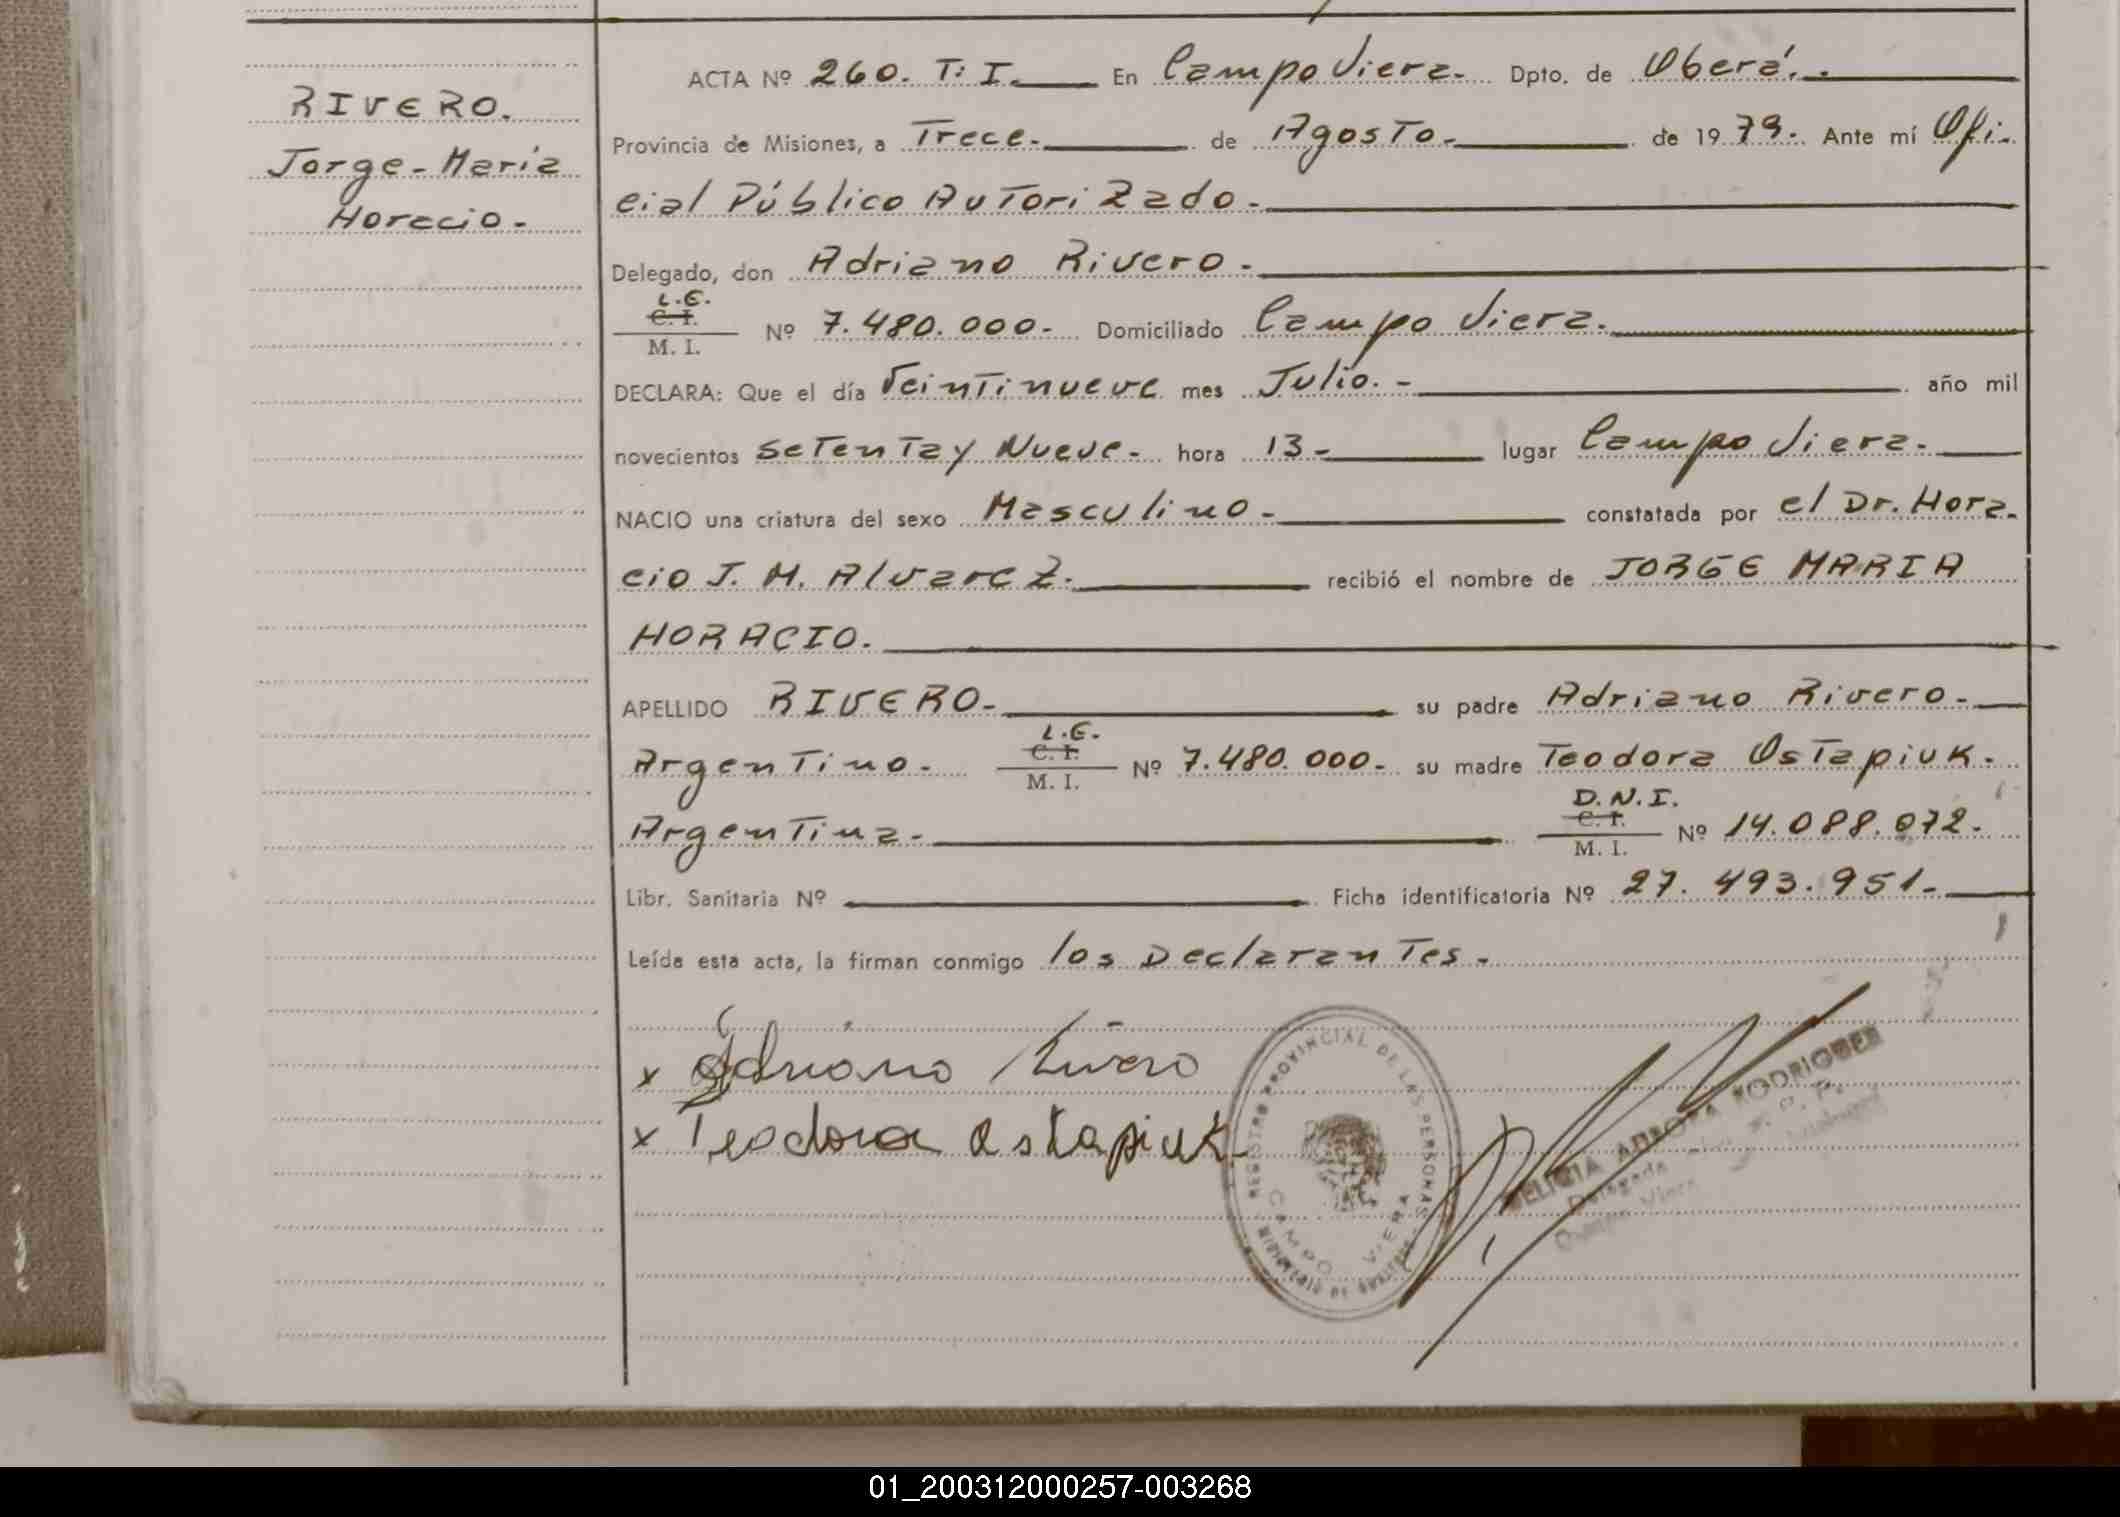 RIVERO.
Jorge-María
Horacio.-
ACTA Nº 260. T: I. En Campo Viera.- Dpto. de Oberá.-
Provincia de Misiones, a Trece.- de Agosto.- de 1979.- Ante mí Ofi-
cial Público Autorizado.-
Delegado, don Adriano Rivero.-
L.E.
C. I.
M. I.
Nº 7.480.000.- Domiciliado Campo Viera.
DECLARA: Que el día Veintinueve mes Julio.- año mil
novecientos setenta y Nueve.- hora 13.- lugar Campo Viera.
NACIO una criatura del sexo Masculino.- constatada por el Dr. Hora-
cio J. M. Alvarez.- recibió el nombre de JORGE MARIA
HORACIO.
APELLIDO RIVERO.- su padre Adriano Rivero.-
Argentino.- L.E. C. I. M. I. Nº 7.480.000.- su madre Teodora Ostapiuk.
Argentina.- D.N.I. C. I. M. I. Nº 14.088.072.-
Libr. Sanitaria Nº Ficha identificatoria Nº 27.493.951.-
Leída esta acta, la firman conmigo los Declarantes.-
x Adriano Rivero
x Teodora Ostapiuk
REGISTRO PROVINCIAL DE LAS PERSONAS
CAMPO VIERA
AURORA RODRIGUEZ
Delegada
Campo Viera
01_200312000257-003268